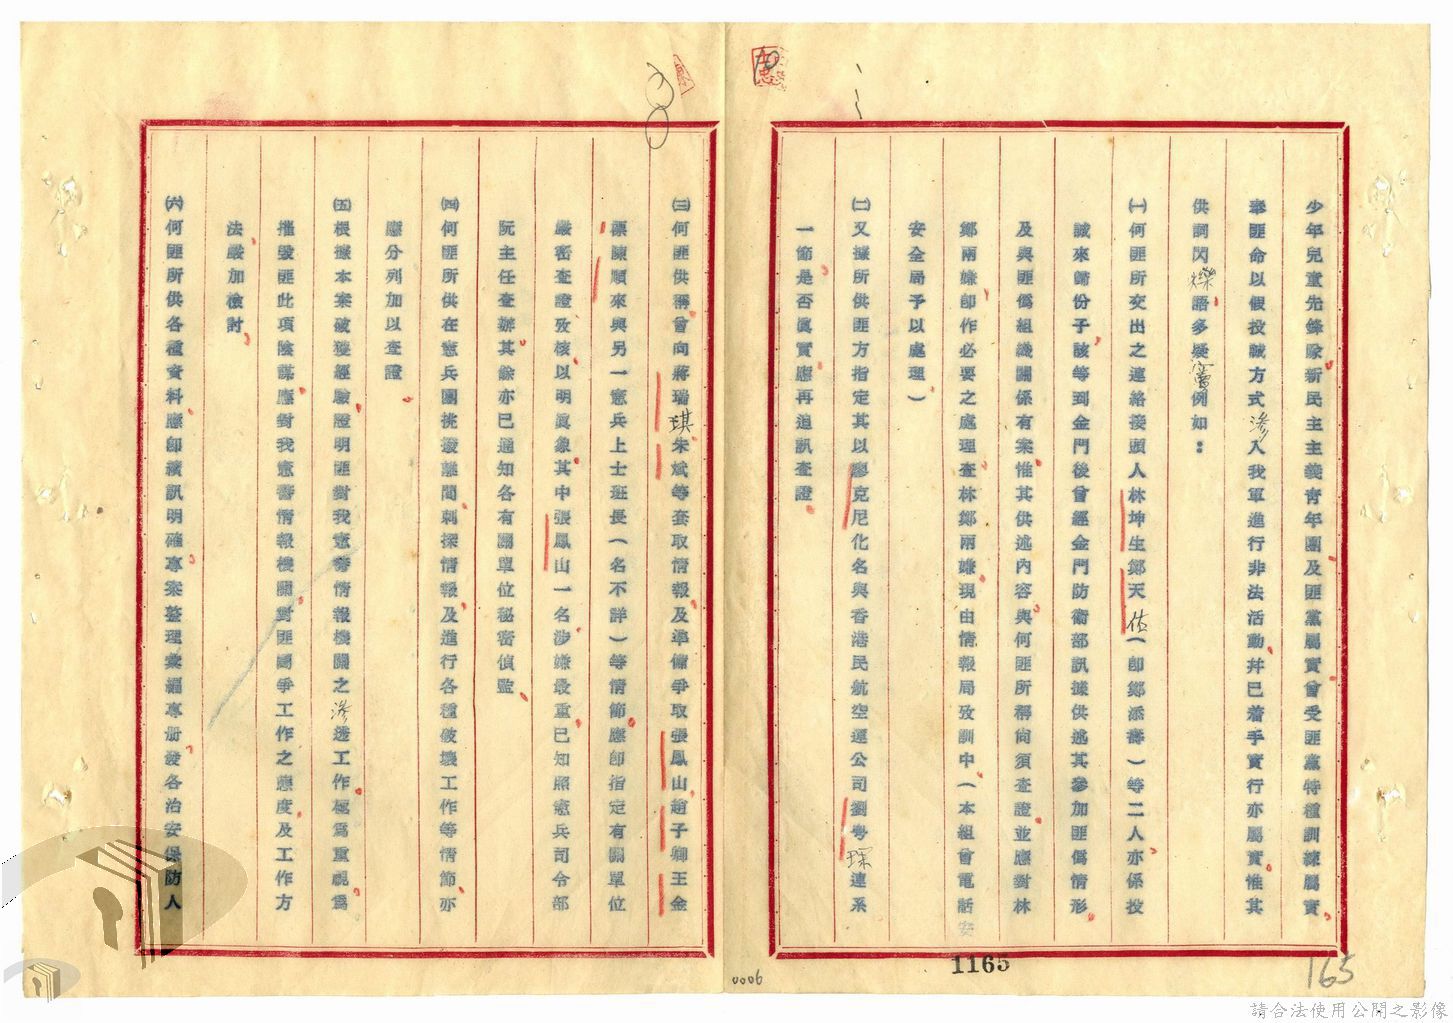 少年兒童先鋒隊新民主主義青年團及匪黨屬實曾受匪黨特種訓練屬實
奉匪命以假投誠方式滲入我軍進行非法活動幷已着手實行亦屬實惟其
供詞閃爍語多疑竇例如：
㈠何匪所交出之連絡接頭人林坤生鄭天佐（卽鄭添壽）等二人亦係投
誠來歸份子該等到金門後曾經金門防衛部訊據供述其參加匪僞情形
及與匪僞組織關係有案惟其供述內容與何匪所稱尙須查證並應對林
鄭兩嫌卽作必要之處理查林鄭兩嫌現由情報局攷訓中（本組曾電話安
安全局予以處理）
㈡又據所供匪方指定其以廖克尼化名與香港民航空運公司劉粵琛連系
一節是否眞實應再追訊查證
㈢何匪供稱曾向蔣瑞琪朱斌等套取情報及準備爭取張鳳山趙子卿王金
陳順來與另一憲兵上士班長（名不詳）等情節應卽指定有關單位
嚴密查證攷核以明眞象其中張鳳山一名涉嫌最重已知照憲兵司令部
阮主任查辦其餘亦已通知各有關單位秘密偵監
㈣何匪所供在憲兵團挑撥離間刺探情報及進行各種破壞工作等情節亦
應分列加以查證
㈤根據本案破獲經驗證明匪對我憲警情報機關之滲透工作極爲重視爲
摧毀匪此項陰謀應對我憲警情報機關對匪鬪爭工作之態度及工作方
法嚴加檢討
㈥何匪所供各種資料應卽續訊明確專案整理彙編專册發各治安保防人
1165
165
0006
請合法使用公開之影像